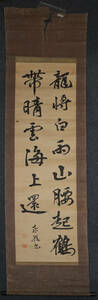 龍將白雨山腰起鶴
帶晴雲海上還